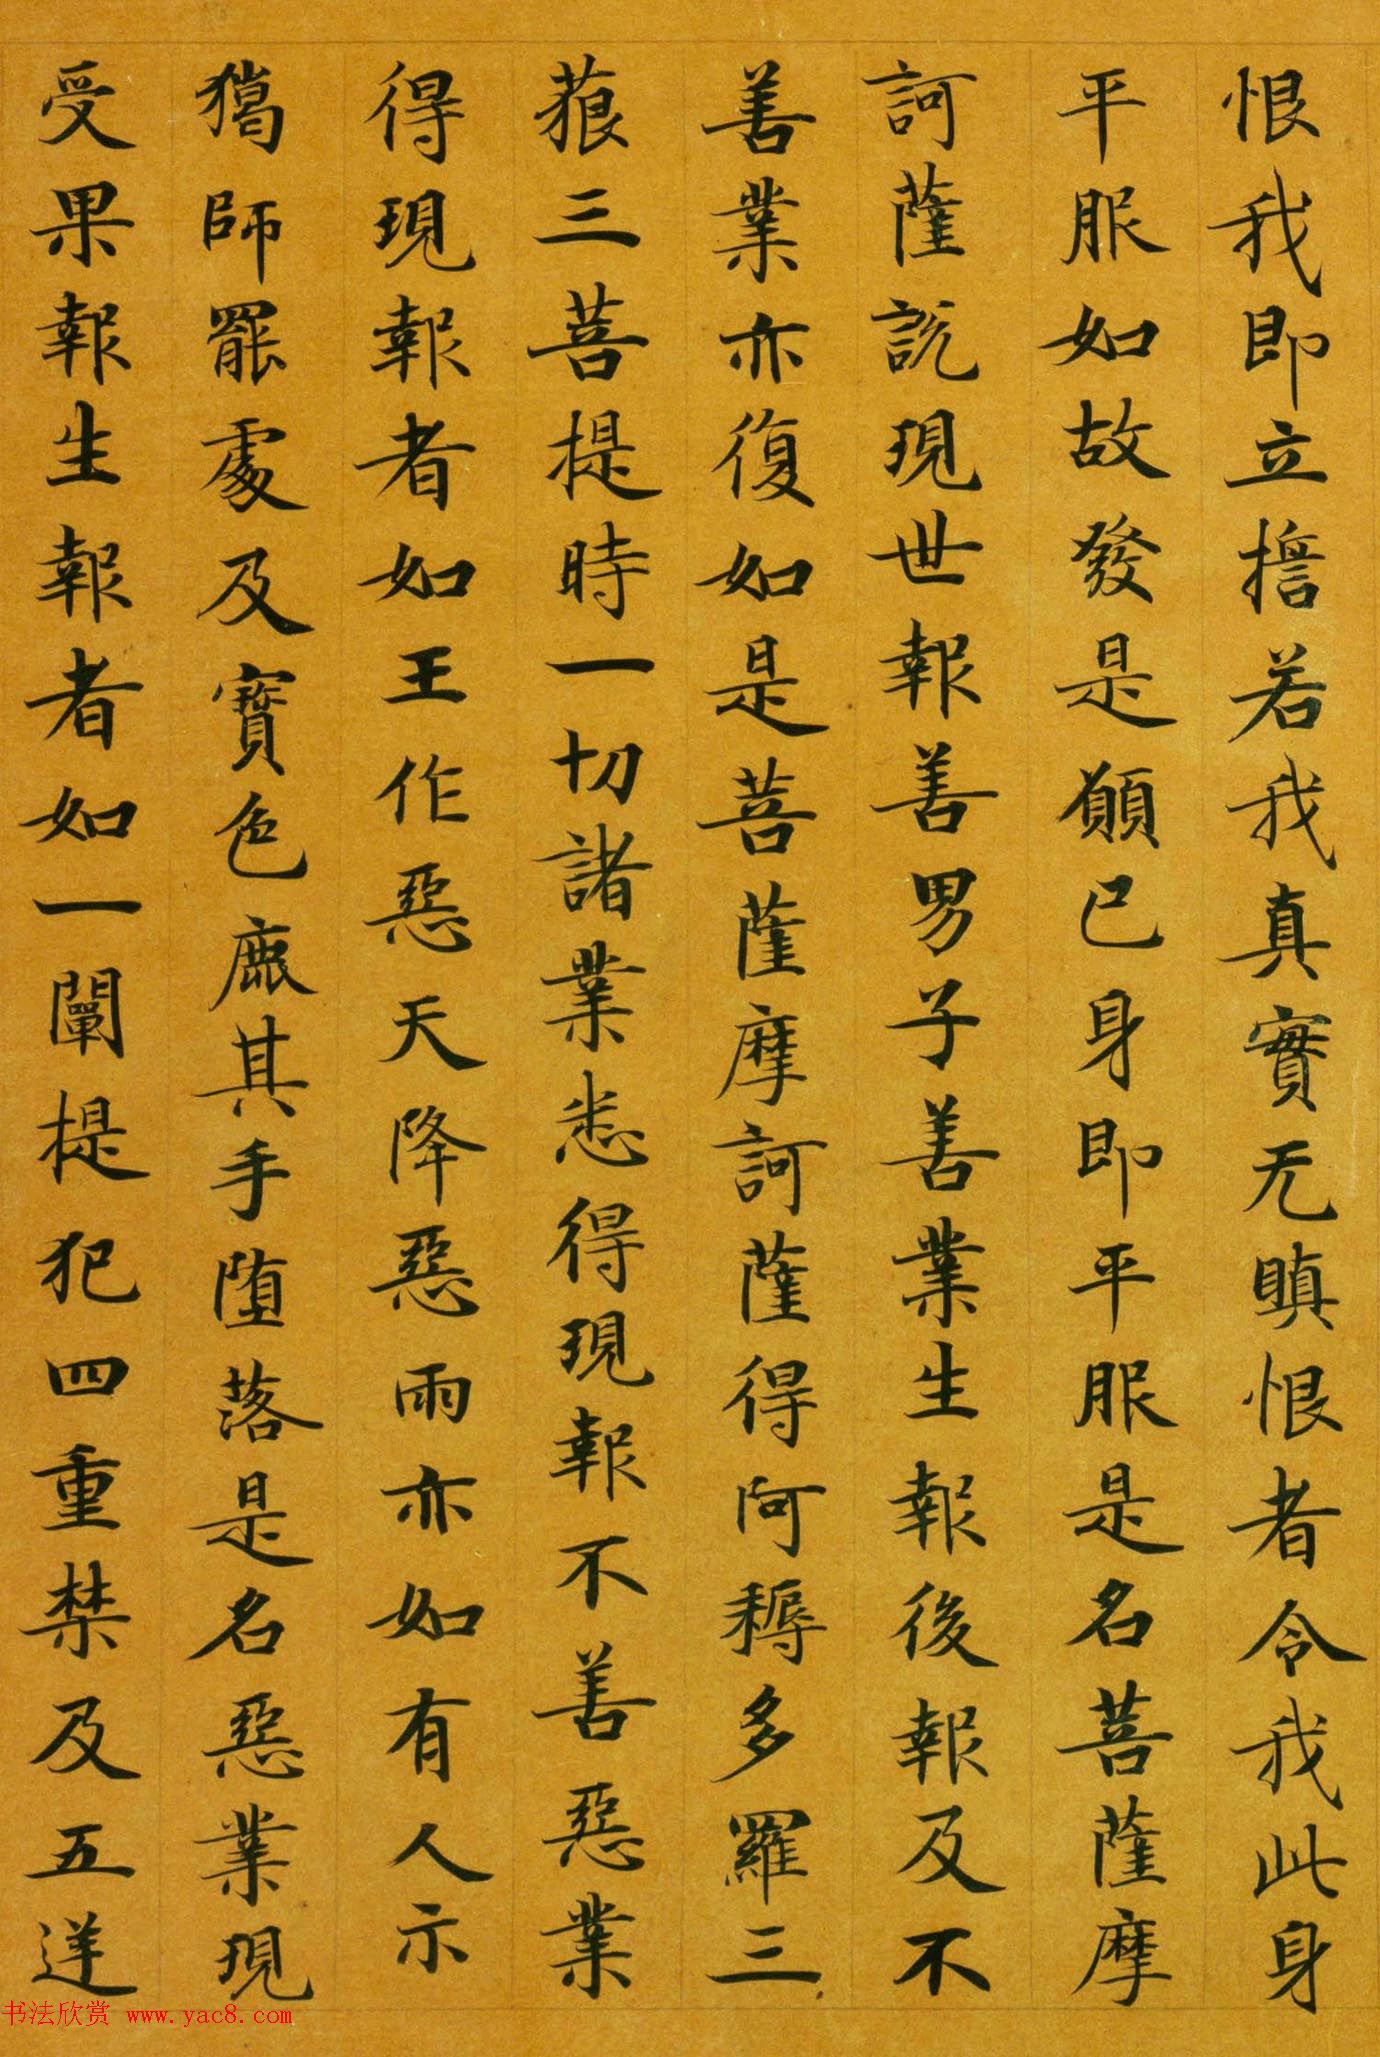 恨我即立擔若我真實无瞋恨者令我此身
平服如故發是願已身即平服是名菩薩摩
訶薩說現世報善男子善業生報後報及不
善業亦復如是菩薩摩訶薩得阿耨多羅三
藐三菩提時一切諸業悉得現報不善惡業
得現報者如王作惡天降惡雨亦如有人示
獦師羆處及寶色鹿其手墮落是名惡業現
受果報生報者如一闡提犯四重禁及五逆
书法欣赏 www.yac8.com